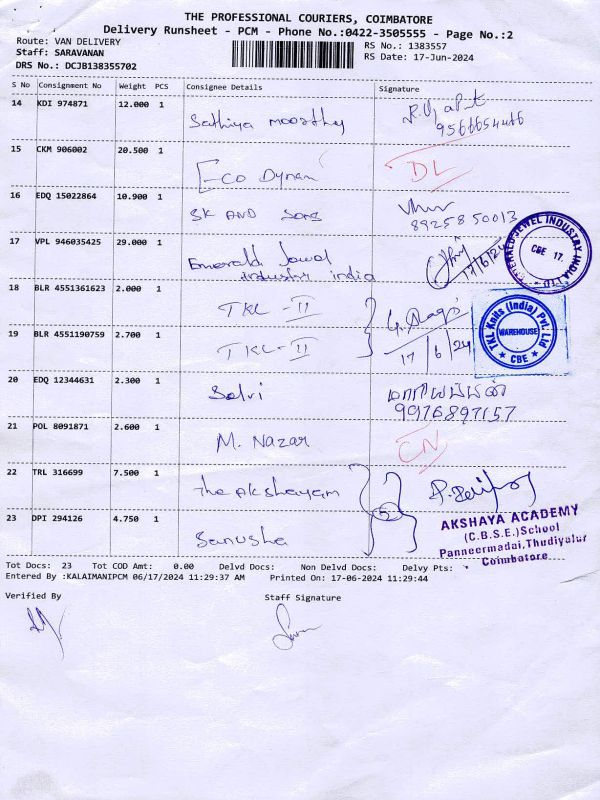 THE PROFESSIONAL COURIERS, COIMBATORE
Delivery Runsheet - PCM - Phone No.:0422-3505555 - Page No.:2
Route: VAN DELIVERY
RS No.: 1383557
Staff: SARAVANAN
RS Date: 17-Jun-2024
DRS No.: DCJB138355702
S No Consignment No Weight PCS Consignee Details Signature
14 KDI 974871 12.000 1 Sathiya moorthy
9566654466
15 CKM 906002 20.500 1 Eco Dynam DL
16 EDQ 15022864 10.900 1 SK AND Sons
8925850013
17 VPL 946035425 29.000 1 Emerald Jewel
industry india
17/6/24
EMERALD JEWEL INDUSTRY INDIA LTD
CBE 17.
18 BLR 4551361623 2.000 1 TKL - II
19 BLR 4551190759 2.700 1 TKL - II
17/6/24
TKL Knits (India) Pvt. Ltd
WAREHOUSE
CBE
20 EDQ 12344631 2.300 1 Selvi மாரியப்பன்
9976897157
21 POL 8091871 2.600 1 M. Nazar CN
22 TRL 316699 7.500 1 The Akshayam
23 DPI 294126 4.750 1 Sanusha
AKSHAYA ACADEMY
(C.B.S.E.) School
Panneermadai, Thudiyalur
Coimbatore
Tot Docs: 23 Tot COD Amt: 0.00 Delvd Docs: Non Delvd Docs: Delvy Pts:
Entered By :KALAIMANIPCM 06/17/2024 11:29:37 AM Printed On: 17-06-2024 11:29:44
Verified By Staff Signature